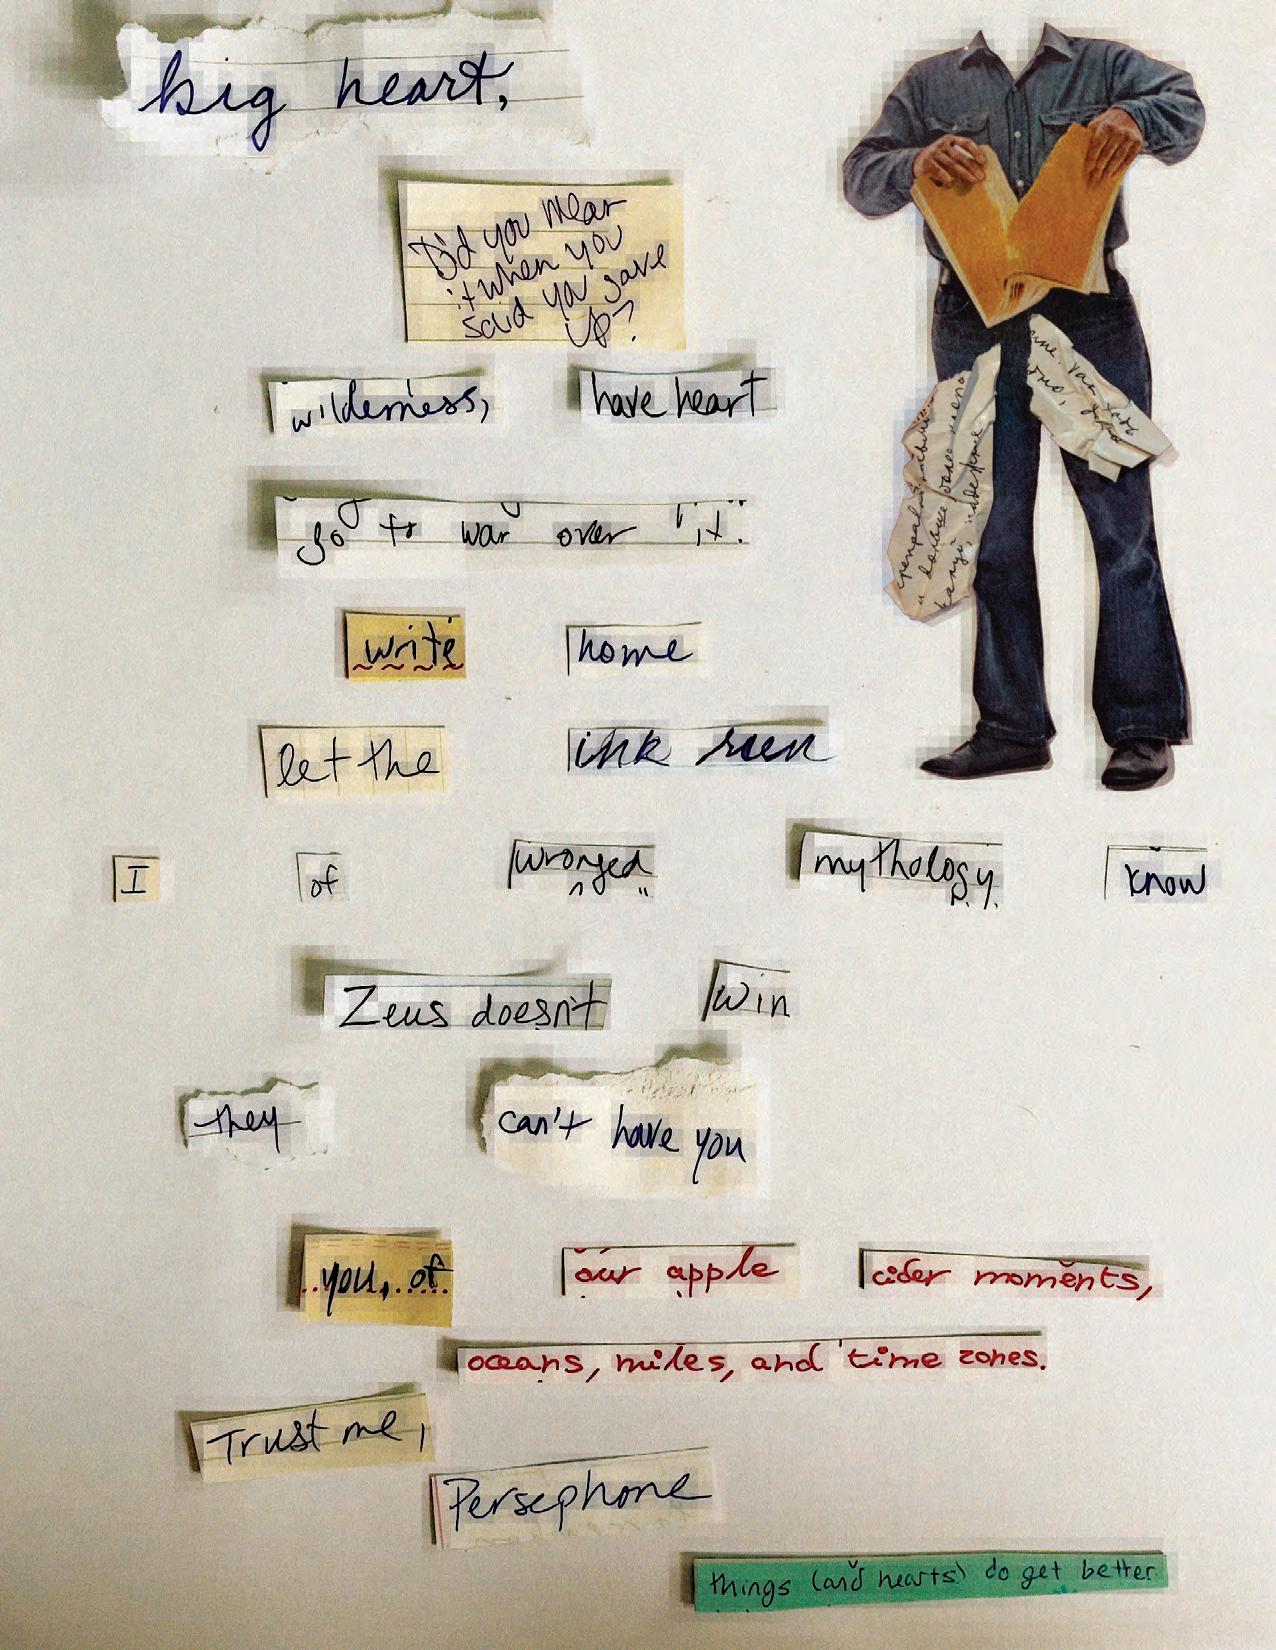 big heart,
Did you mean
it when you
said you gave
up?
wilderness, have heart
go to war over it.
write home
let the ink run
I of wronged mythology. know
Zeus doesn't win
they can't have you
you, of our apple cider moments,
oceans, miles, and time zones.
Trust me,
Persephone
things (and hearts) do get better